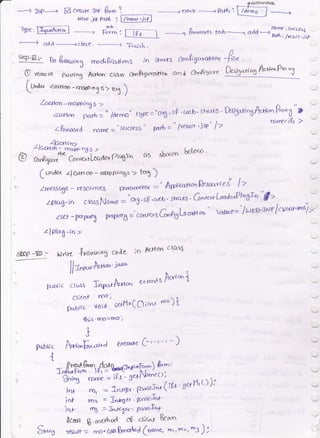 → JSP → ☑ create JSP form? → next → path: /demo
New JSP Path: /Input.jsp
Type: InputAction Form: If1 → forwards tab → add → Name: success
Path: /result.jsp
→ add → close → Finish.
Step-II:- Do following modifications in struts configuration file.
① remove existing Action class configuration and configure DelegatingActionProxy
(under <action-mappings> tag)
<action-mappings>
<action path="/demo" type="org.sf.web.struts.DelegatingActionProxy"
name=if1>
<forward name="success" path="/result.jsp"/>
</action>
</action-mappings>
② Configure the ContextLoaderPlugIn as shown below.
(under </action-mappings> tag)
<message-resources parameter="ApplicationResources"/>
<plug-in className="org.sf.web.struts.ContextLoaderPlugIn">
<set-property property="contextConfigLocation" value="/WEB-INF/client.xml"/>
</plug-in>
step-III:- write following code in Action class
//InputAction.java
public class InputAction extends Action{
Client mo;
public void setMo(Client mo){
this.mo=mo;
}
public ActionForward execute (-----)
{
//read form data
InputForm if1 = (InputForm) form;
String name = if1.getName();
int m1 = Integer.parseInt(if1.getM1());
int m2 = Integer.parseInt
int m3 = Integer.parseInt
//call B.method of client Bean
String result = mo.callBmethod(name, m1, m2, m3);